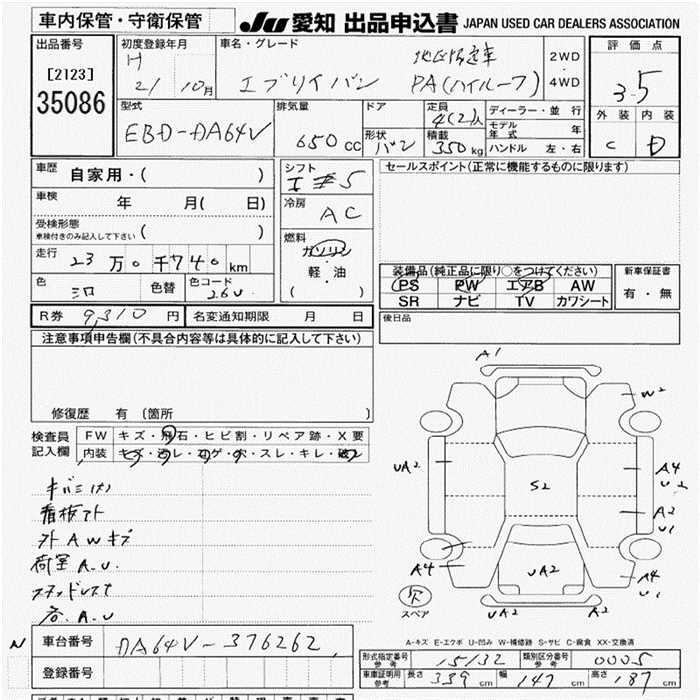 車内保管・守衛保管
JU 愛知 出品申込書 JAPAN USED CAR DEALERS ASSOCIATION
出品番号
[2123]
35086
初度登録年月
H
21 10月
車名・グレード
エブリイバン PA(ハイルーフ)
2WD
4WD
評価点
3.5
外装 内装
C D
型式
EBD-DA64V
排気量
650 cc
ドア
形状
バン
定員
4(2)人
積載
350 kg
ディーラー・並行
モデル年式 年
ハンドル 左・右
車歴
自家用・( )
車検
年 月( 日)
受検形態
車検付きのみ記入して下さい ( )
走行
23万0千740km
色
シロ
色替
色コード
26U
シフト
I #5
冷房
AC
燃料
ガソリン
軽・油
( )
セールスポイント(正常に機能するものに限ります)
装備品(純正品に限り○をつけてください)
PS PW エアB AW
SR ナビ TV カワシート
新車保証書
有・無
R券 9,310 円
名変通知期限 月 日
後日品
注意事項申告欄(不具合内容等は具体的に記入して下さい)
修復歴 有 〔箇所 〕
検査員
記入欄
FW キズ・飛石・ヒビ割・リペア跡・X要
内装 キズ・汚レ・コゲ・穴・スレ・キレ・破レ
キバミ(大)
看板アト
外AWキズ
荷室A.U.
スタッドレス
各.A.U
A1
W2
UA2
S2
A4
U2
A2
U1
A4
UA2
A4
U1
欠
スペア
UA2
A2
N
車台番号
DA64V-376262
登録番号
A-キズ E-エクボ U-凹み W-補修跡 S-サビ C-腐食 XX-交換済
形式指定番号
参考
15132
類別区分番号
参考
0005
車庫証明用
参考
長さ 339 cm 幅 147 cm 高さ 187 cm